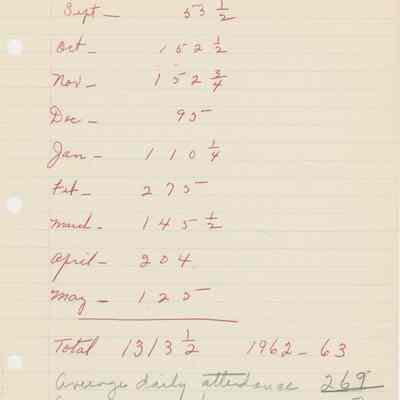 Sept - 53 1/2
Oct - 152 1/2
Nov - 152 3/4
Dec - 95
Jan - 110 1/4
Feb - 275
March - 145 1/2
April - 204
May - 125
Total 1313 1/2 1962-63
Average daily attendance 269